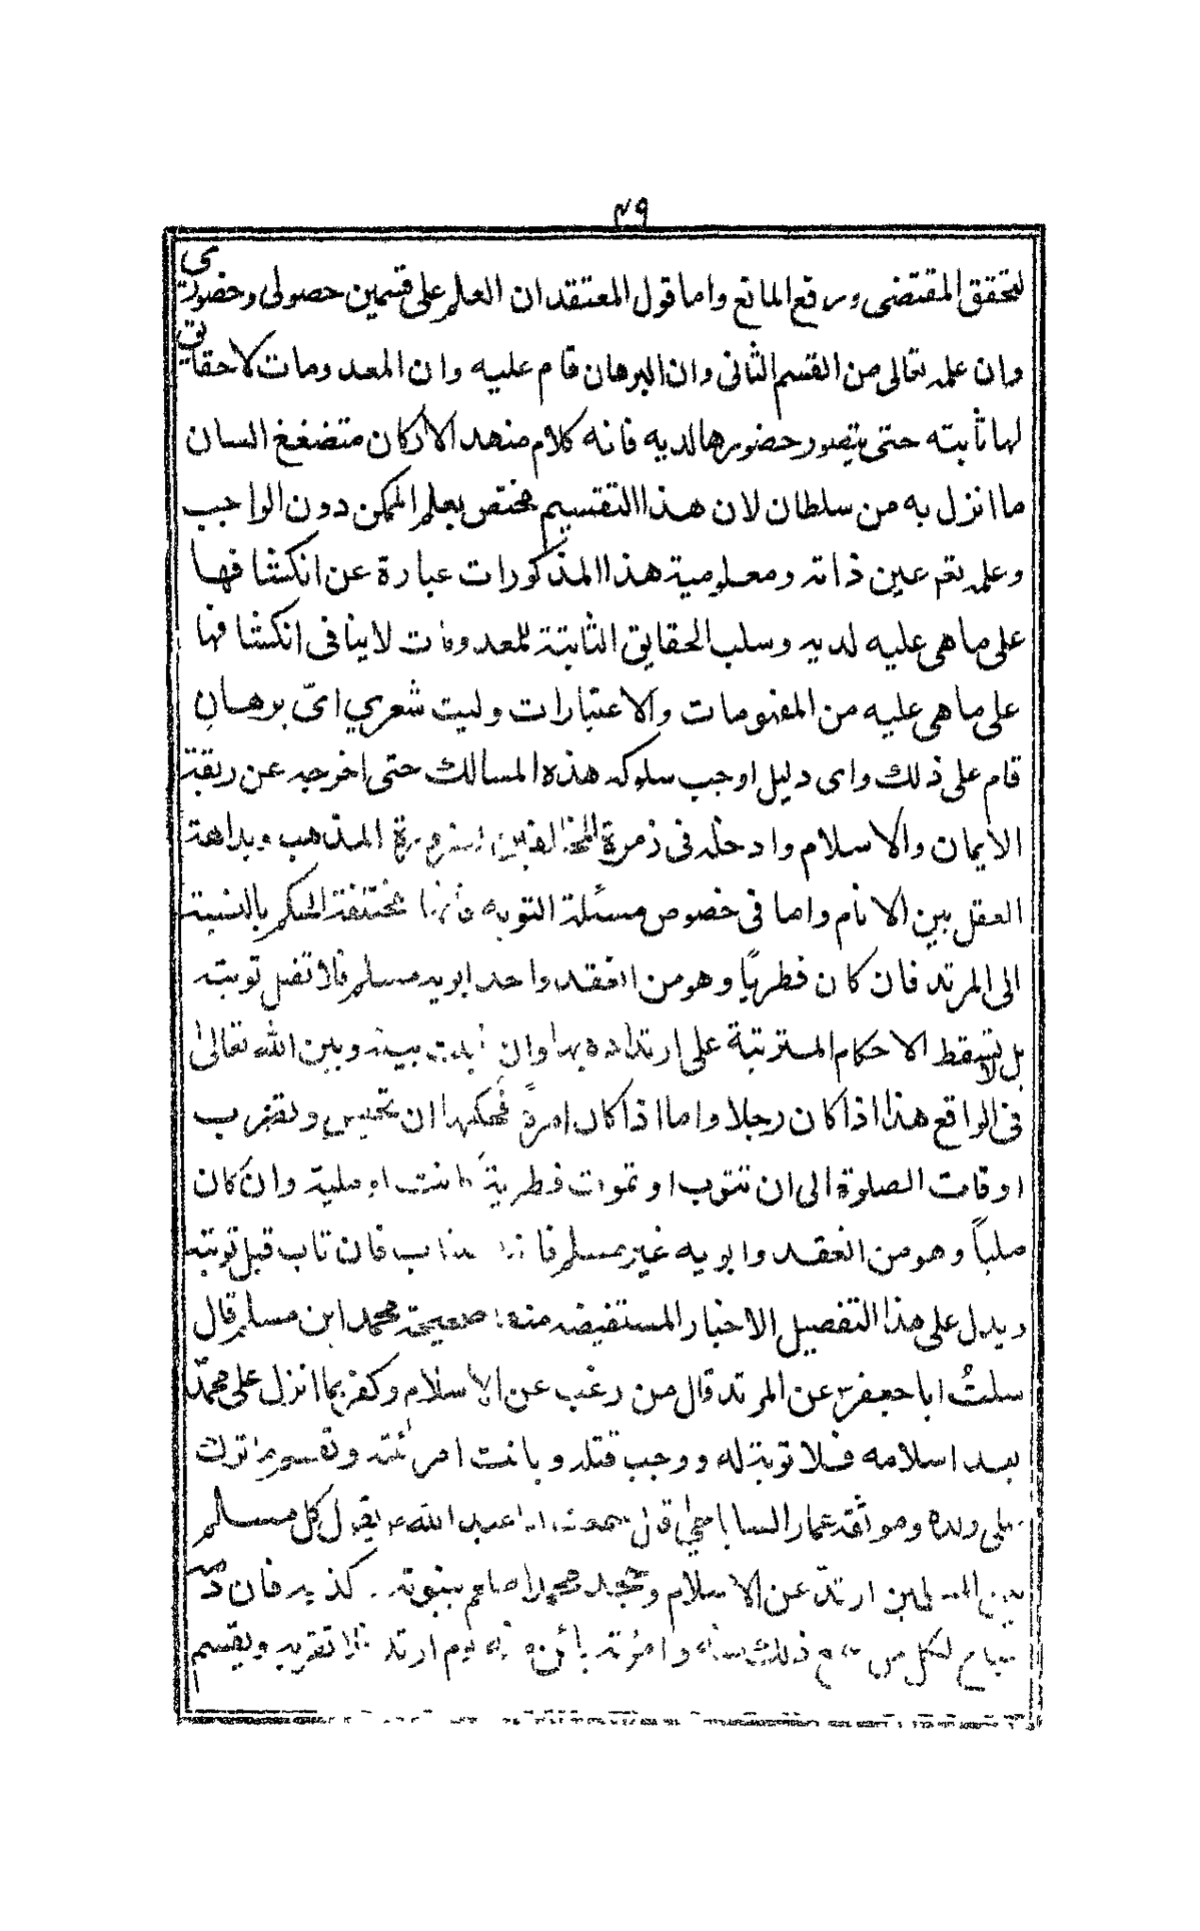 ٤٩
لتحقق المقتضى ورفع المانع واما قول المعتقد ان العلم على قسمين حصولى وحضورى
وان علمه تعالى من القسم الثانى وان البرهان قام عليه وان المعدومات لا حقايق
لها ثابته حتى يتصور حضورها لديه فانه كلام منهد الاركان متضغضغ البنيان
ما انزل به من سلطان لان هذا التقسيم مختص بعلم الممكن دون الواجب
وعلمه تعم عين ذاته ومعلومية هذا المذكورات عبارة عن انكشافها
على ما هى عليه لديه وسلب الحقايق الثابتة للمعدومات لا ينافى انكشافها
على ما هى عليه من المفهومات والاعتبارات وليت شعري اىّ برهان
قام على ذلك واى دليل اوجب سلوكه هذه المسالك حتى اخرجه عن ربقة
الايمان والاسلام وادخله فى زمرة المخالفين لضرورة المذهب وبداهة
العقل بين الانام واما فى خصوص مسئلة التوبه فانها مختلفة الحكم بالنسبة
الى المرتد فان كان فطريًا وهو من انعقد واحد ابويه مسلم فلا تقبل توبته
بل لا تسقط الاحكام المترتبة على ارتداده بها وان بينه وبين الله تعالىٰ
فى الواقع هذا اذا كان رجلا واما اذا كان امرةً فحكمها ان تحبس وتضرب
اوقات الصلوة الى ان تتوب او تموت فطريةً كانت او ملية وان كان
ملياً وهو من انعقد وابويه غير مسلم فانه يستتاب فان تاب قبل توبته
ويدل على هذا التفصيل الاخبار المستفيضه منها صحيحة محمد ابن مسلم قال
سئلتُ ابا جعفرؑ عن المرتد قال من رغب عن الاسلام وكفر بما انزل على محمدؐ
بعد اسلامه فلا توبة له ووجب قتله وبانت امرئته وتقسم ما ترك
على ولده وموثقه عمار الساباطى قال سمعت ابا عبد اللهؑ يقول كل مسلم
بين المسلمين ارتدّ عن الاسلام وجحد محمدا صلعم بنبوته وكذبه فان دمه
مباح لكل من سمع ذلك منه وامرئته بائنة منه يوم ارتد فلا تقربه ويقسم